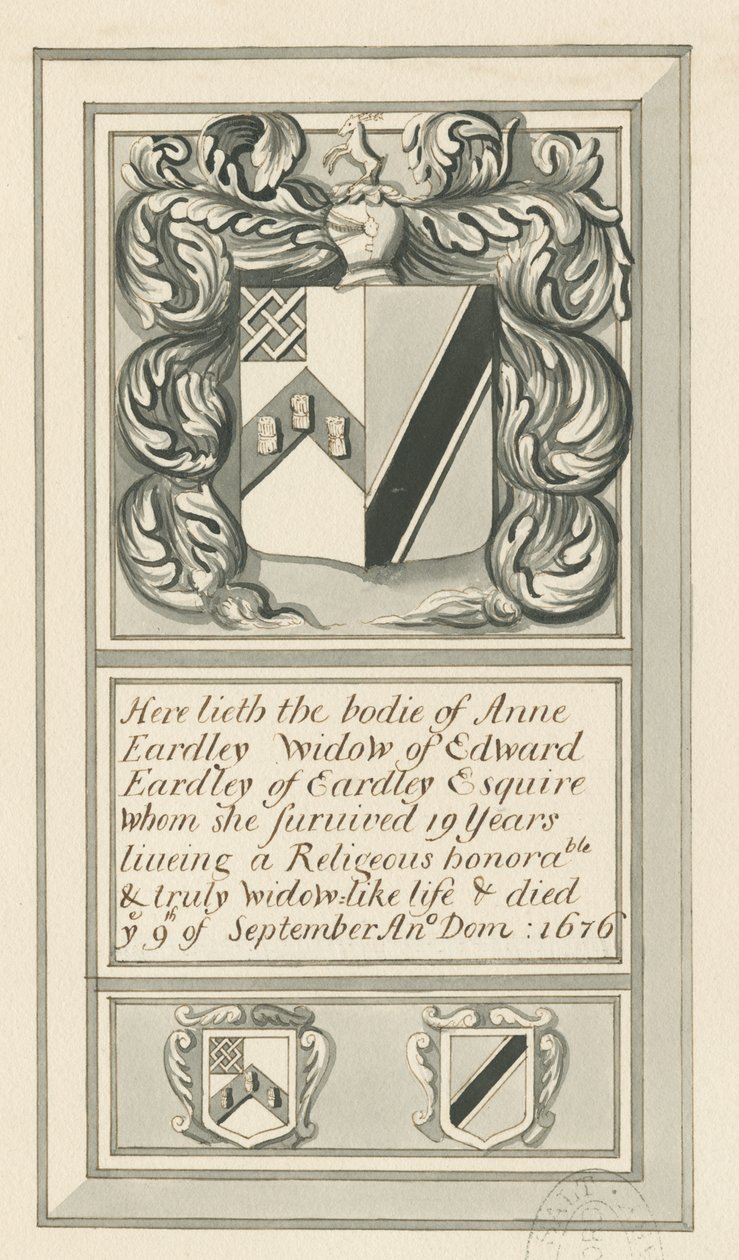 Here lieth the bodie of Anne
Eardley Widow of Edward
Eardley of Eardley Esquire
whom she suruived 19 Years
liueing a Religeous honorable
& truly widow-like life & died
ye 9th of September Ano Dom : 1676